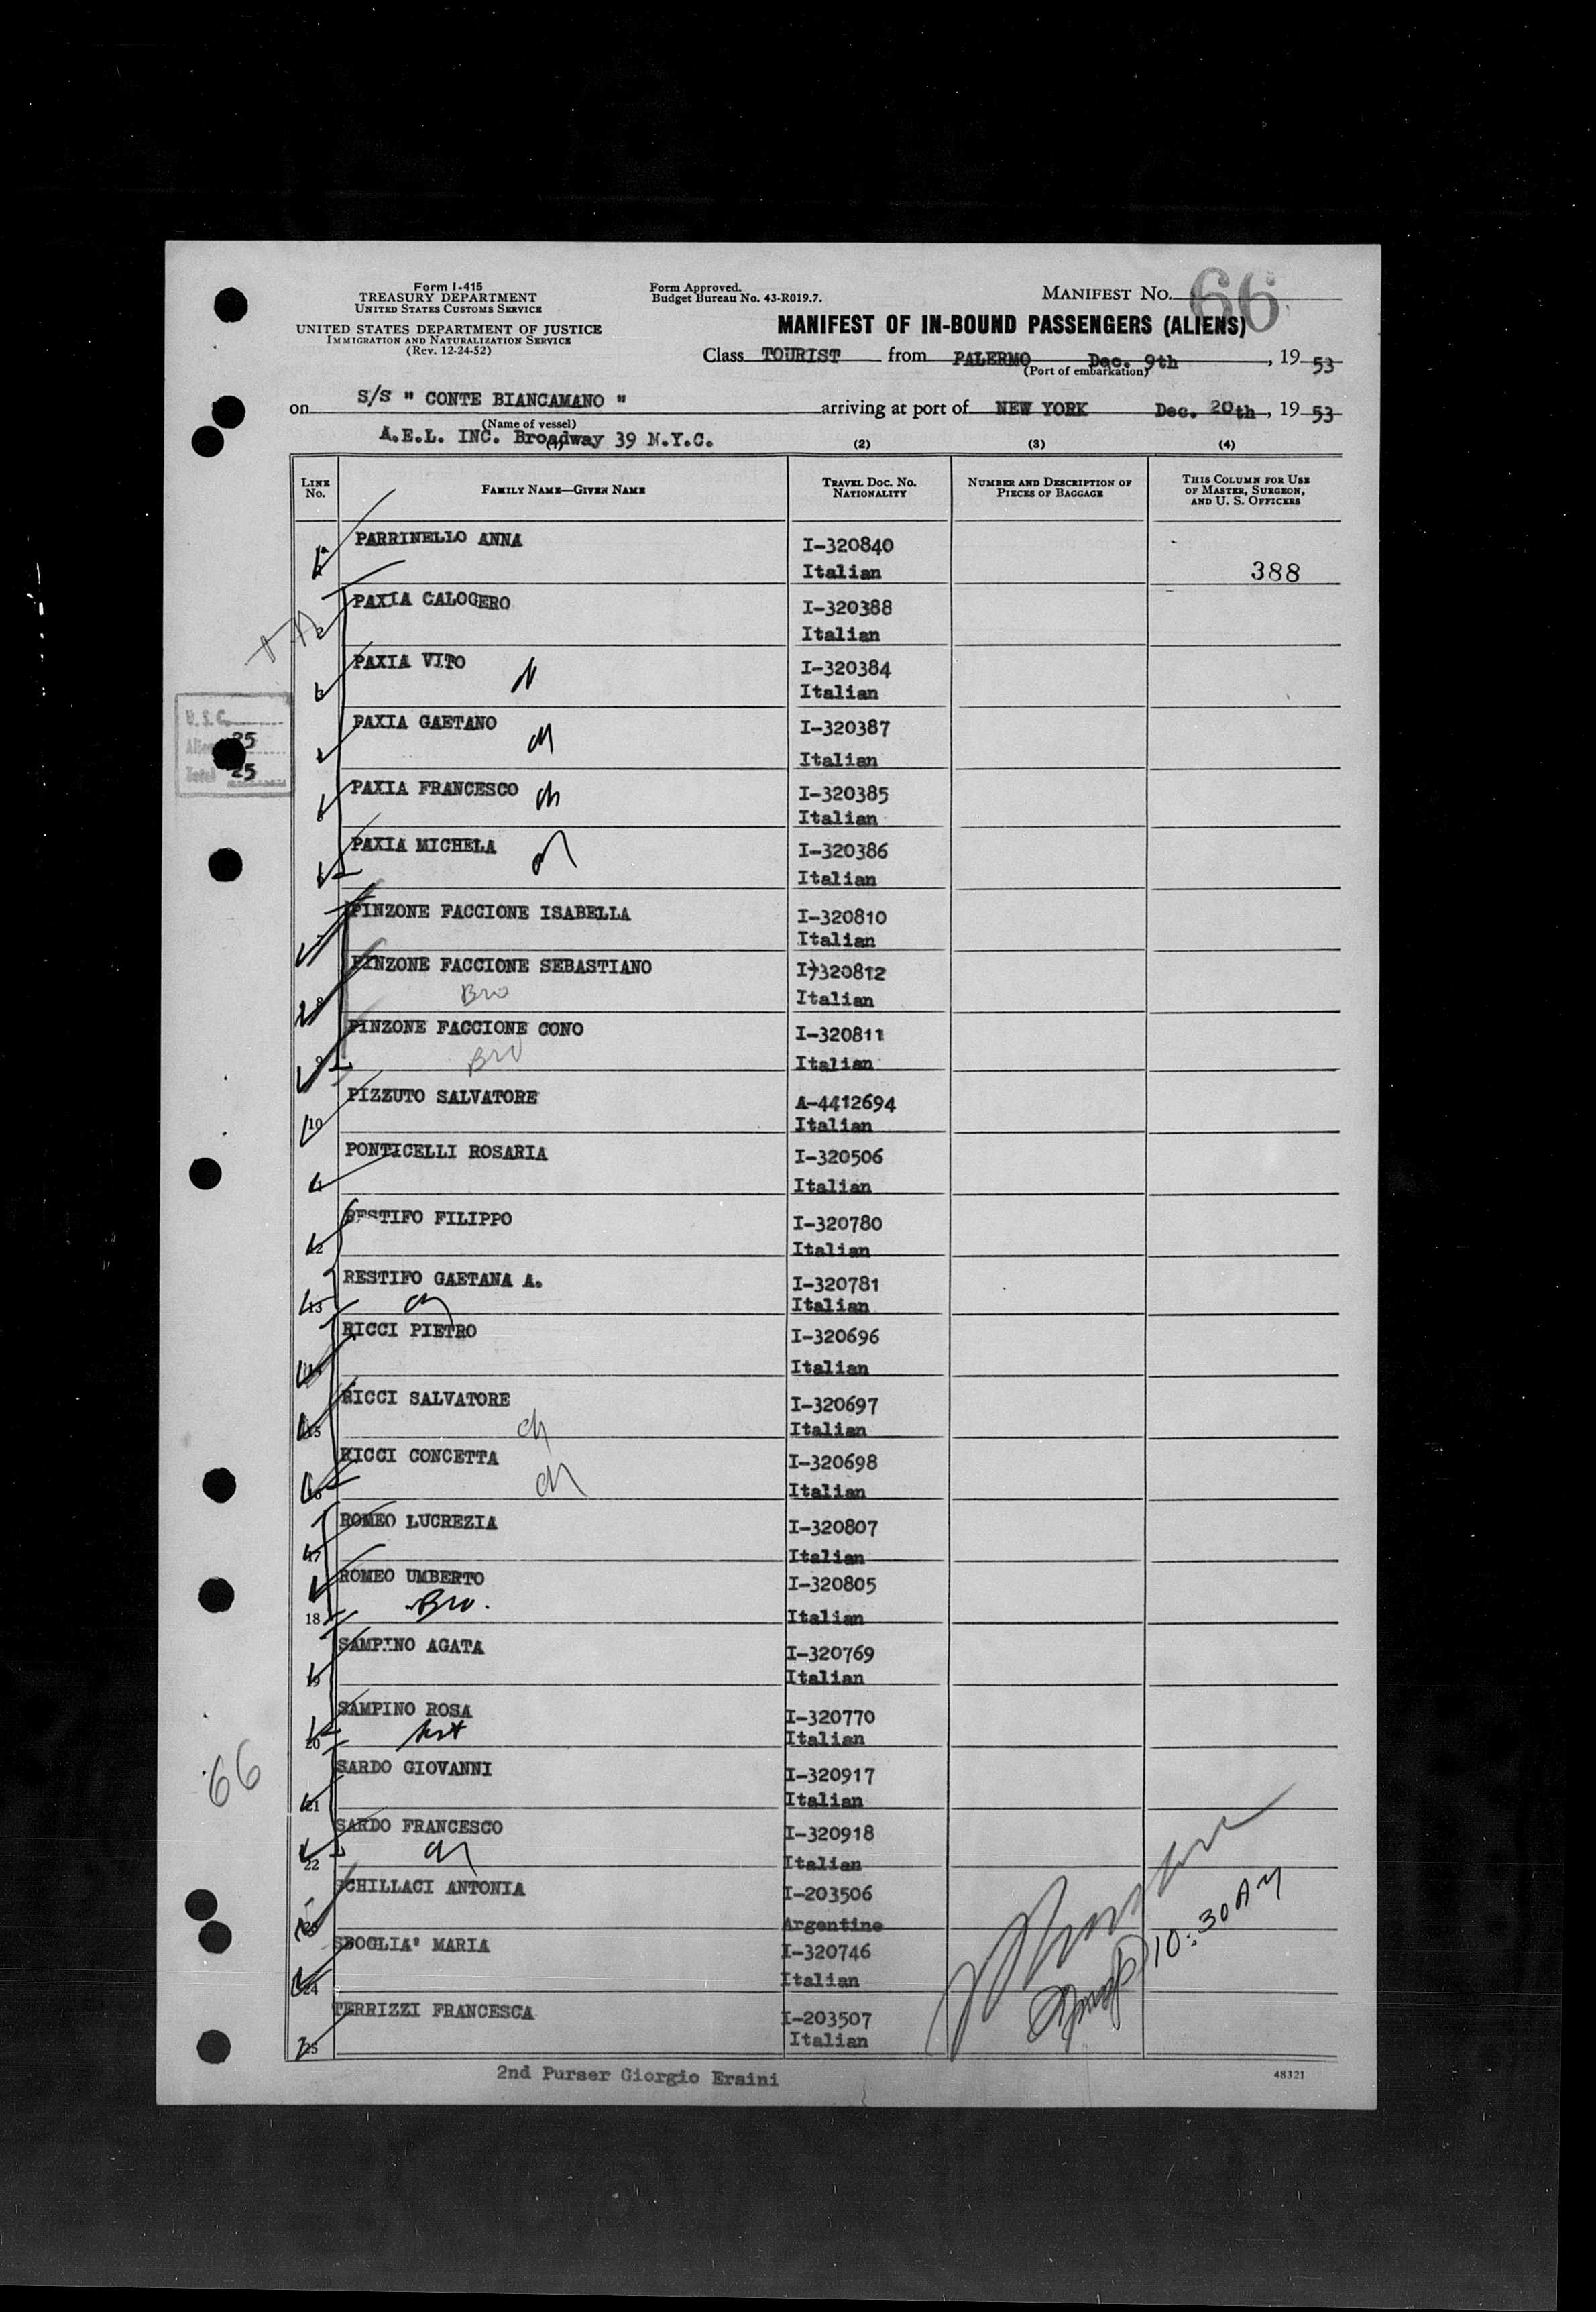 Form I-415
TREASURY DEPARTMENT
UNITED STATES CUSTOMS SERVICE
UNITED STATES DEPARTMENT OF JUSTICE
IMMIGRATION AND NATURALIZATION SERVICE
(Rev. 12-24-52)
Form Approved.
Budget Bureau No. 43-R019.7.
MANIFEST NO. 66
MANIFEST OF IN-BOUND PASSENGERS (ALIENS)
Class TOURIST from PALERMO Dec. 9th, 19 53
(Port of embarkation)
on S/S " CONTE BIANCAMANO " arriving at port of NEW YORK Dec. 20th, 19 53
(Name of vessel)
A.E.L. INC. Broadway 39 N.Y.C.
(1) (2) (3) (4)
LINE No. FAMILY NAME—GIVEN NAME TRAVEL DOC. NO. NATIONALITY NUMBER AND DESCRIPTION OF PIECES OF BAGGAGE THIS COLUMN FOR USE OF MASTER, SURGEON, AND U. S. OFFICERS
PARRINELLO ANNA I-320840
Italian 388
2 PAXIA CALOGERO I-320388
Italian
3 PAXIA VITO I-320384
Italian
U.S.C.
Alien 25
Total 25
PAXIA GAETANO I-320387
ch Italian
PAXIA FRANCESCO ch I-320385
Italian
PAXIA MICHELA I-320386
ch Italian
PINZONE FACCIONE ISABELLA I-320810
Italian
8 PINZONE FACCIONE SEBASTIANO I)320812
Bro Italian
9 PINZONE FACCIONE CONO I-320811
Bro Italian
10 PIZZUTO SALVATORE A-4412694
Italian
PONTICELLI ROSARIA I-320506
Italian
12 RESTIFO FILIPPO I-320780
Italian
13 RESTIFO GAETANA A. I-320781
ch Italian
14 RICCI PIETRO I-320696
Italian
15 RICCI SALVATORE I-320697
ch Italian
16 RICCI CONCETTA I-320698
ch Italian
17 ROMEO LUCREZIA I-320807
Italian
18 ROMEO UMBERTO I-320805
Bro. Italian
19 SAMPINO AGATA I-320769
Italian
20 SAMPINO ROSA I-320770
Italian
66
21 SARDO GIOVANNI I-320917
Italian
22 SARDO FRANCESCO I-320918
ch Italian
23 SCHILLACI ANTONIA I-203506
Argentine
24 SBOGLIA' MARIA I-320746
Italian
25 TERRIZZI FRANCESCA I-203507
Italian
10:30 AM
2nd Purser Giorgio Ersini
48321